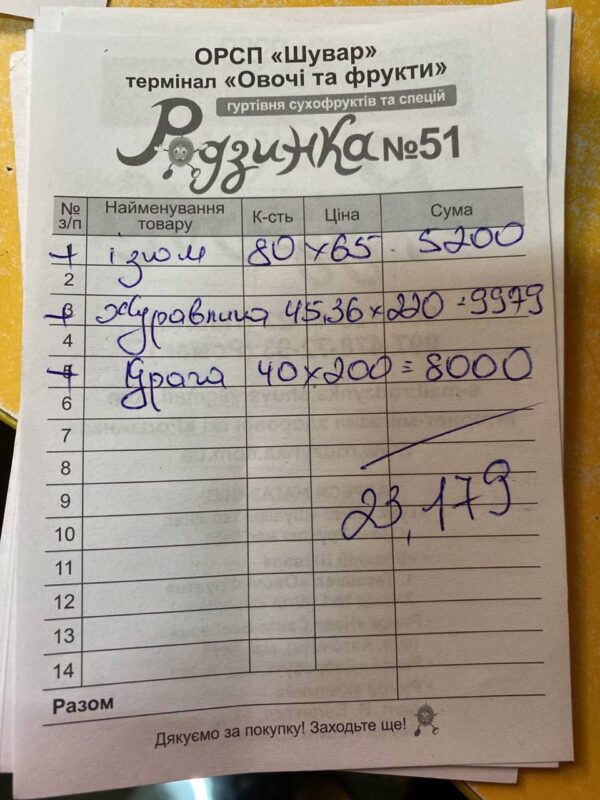 ОРСП «Шувар»
термінал «Овочі та фрукти»
гуртівня сухофруктів та спецій
Родзинка №51
№ з/п Найменування товару К-сть Ціна Сума
+ ізюм 80 x 65 . 5200
2
+ Журавлина 45,36 x 220 = 9979
4
+ 40 x 200 = 8000
6
7
8
9
23,179
10
11
12
13
14
Разом
Дякуємо за покупку! Заходьте ще!